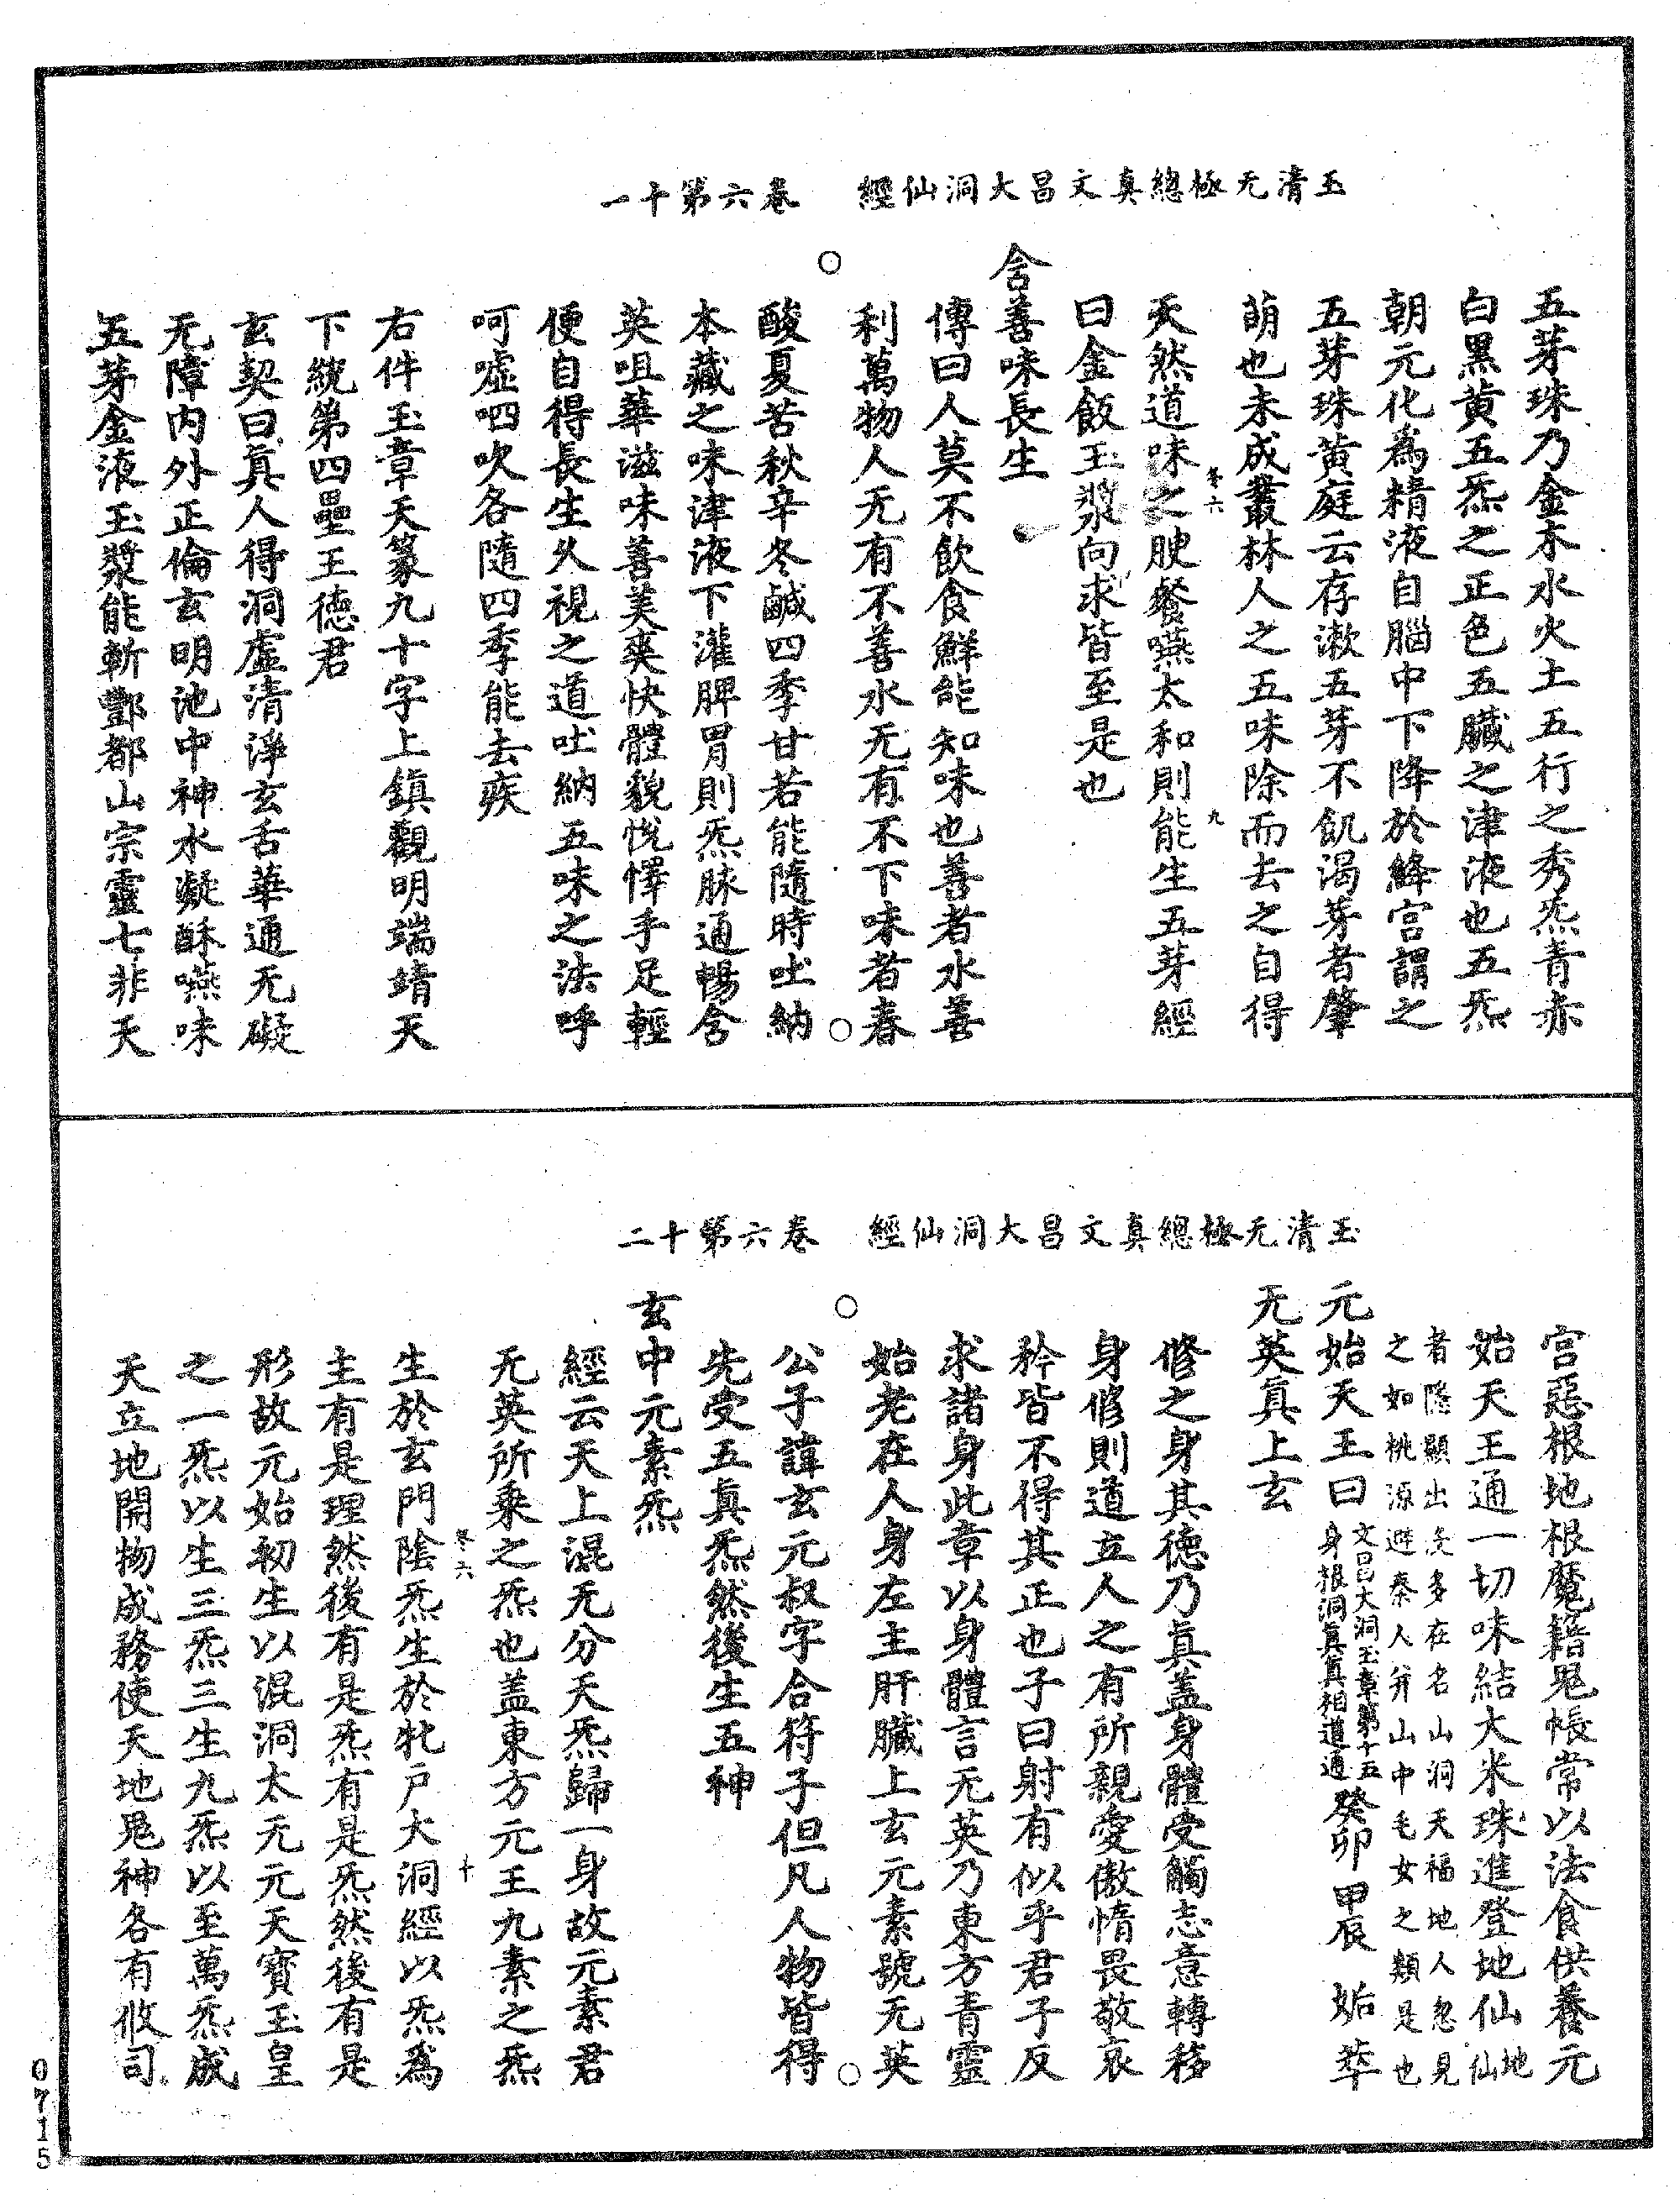 玉清无極總真文昌大洞仙經　卷六第十一
五芽珠乃金木水火土五行之秀炁青赤
白黑黃五炁之正色五臟之津液也五炁
朝元化為精液自腦中下降於絳宮謂之
五芽珠黃庭云存漱五芽不飢渴芽者肇
萌也未成叢林人之五味除而去之自得
天然道味之腴餐嚥太和則能生五芽經
卷六　九
曰金飯玉漿向求皆至是也
含善味長生
傳曰人莫不飲食鮮能知味也善者水善
利萬物人无有不善水无有不下味者春
酸夏苦秋辛冬鹹四季甘若能隨時吐納
本藏之味津液下灌脾胃則炁脉通暢含
英咀華滋味善美爽快體貌悅懌手足輕
便自得長生久視之道吐納五味之法呼
呵噓呬吹各隨四季能去疾
右件玉章天篆九十字上鎮觀明端靖天
下統第四壘王德君
玄契曰真人得洞虛清淨玄舌華通无礙
无障內外正倫玄明池中神水凝酥嚥味
五芽金液玉漿能斬酆都山宗靈七非天
玉清无極總真文昌大洞仙經　卷六第十二
宮惡根地根魔籍鬼帳常以法食供養元
始天王通一切味結大米珠進登地仙地仙
者隱顯出沒多在名山洞天福地人忽見
之如桃源避秦人并山中毛女之類是也
元始天王曰文昌大洞玉章第十五身根洞真真相道通癸卯　甲辰　姤　萃
无英真上玄
修之身其德乃真蓋身體受觸志意轉移
身修則道立人之有所親愛傲惰畏敬哀
矜皆不得其正也子曰射有似乎君子反
求諸身此章以身體言无英乃東方青靈
始老在人身左主肝臟上玄元素號无英
公子諱玄元叔字合符子但凡人物皆得
先受五真炁然後生五神
玄中元素炁
經云天上混无分天炁歸一身故元素君
无英所乘之炁也蓋東方元王九素之炁
卷六　十
生於玄門陰炁生於牝戶大洞經以炁為
主有是理然後有是炁有是炁然後有是
形故元始初生以混洞太无元天寶玉皇
之一炁以生三炁三生九炁以至萬炁成
天立地開物成務使天地鬼神各有攸司
0715